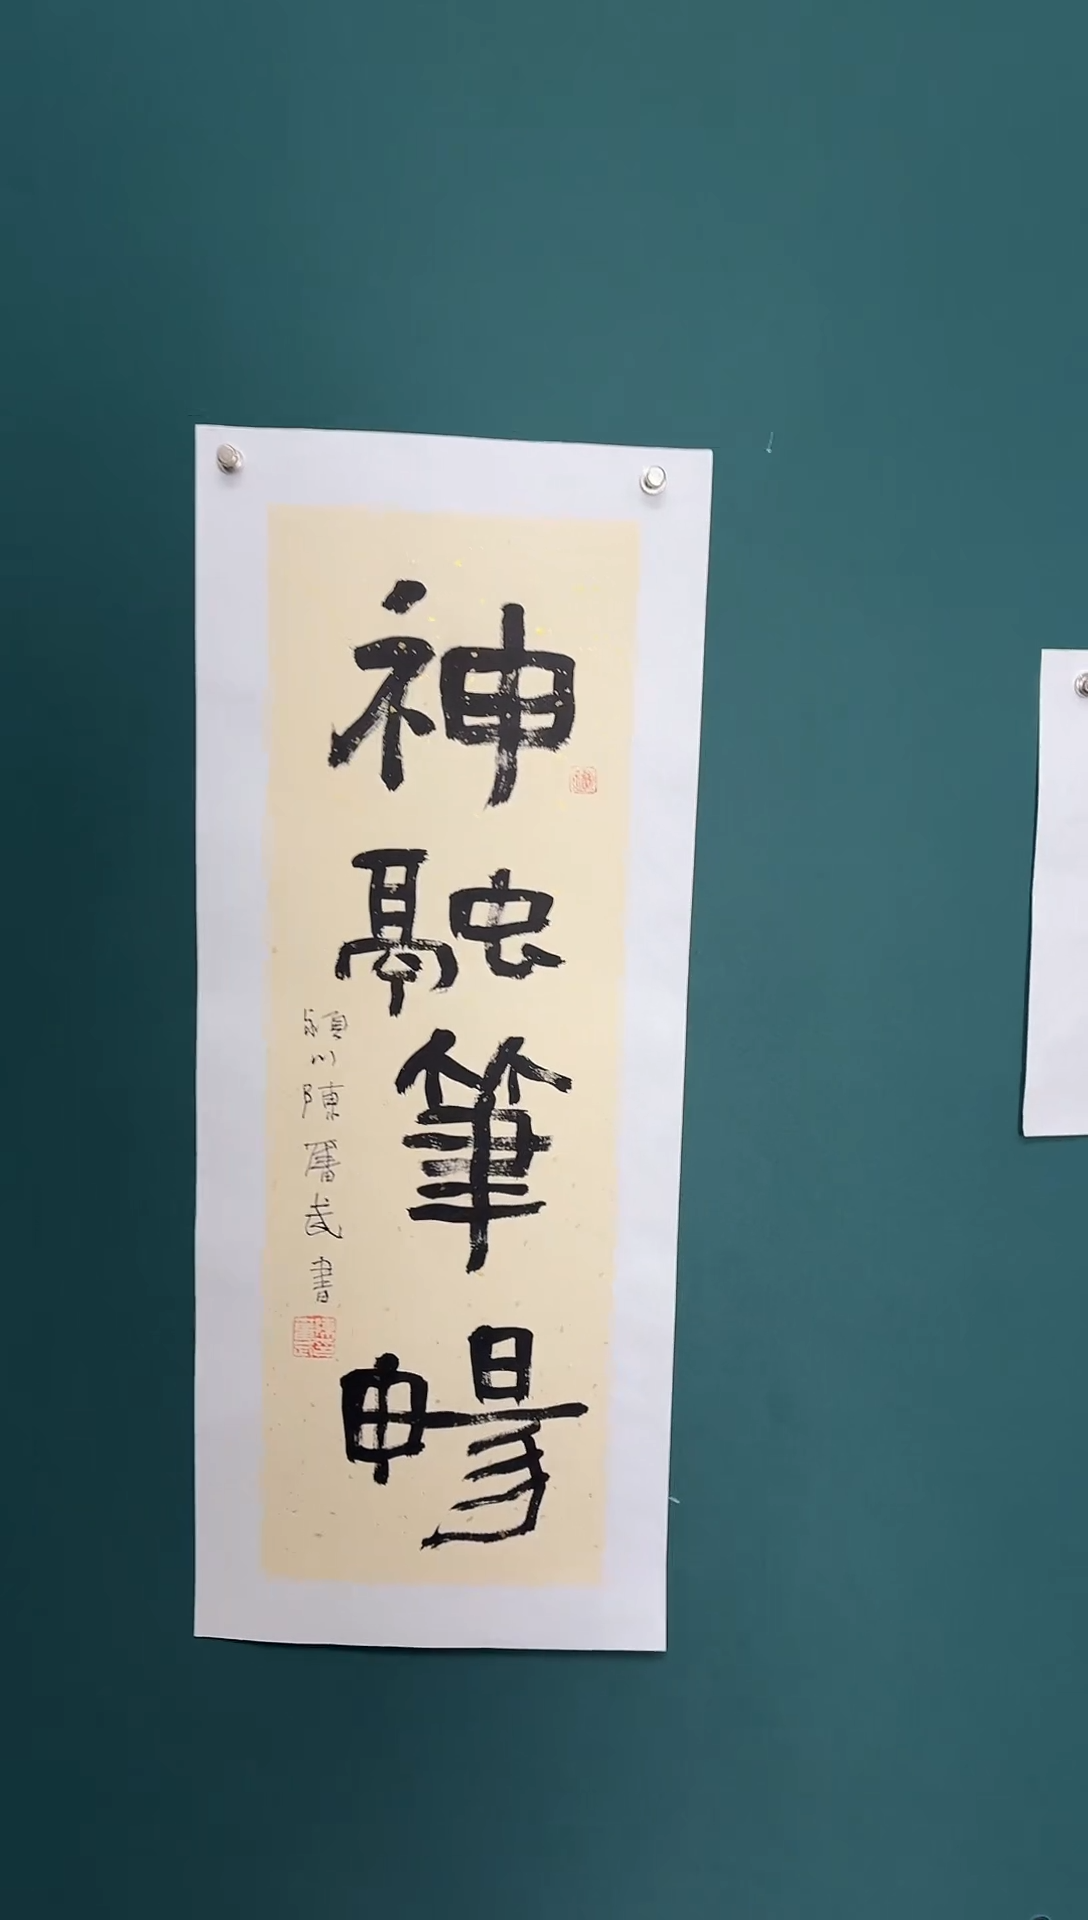 神融筆暢
穎川陳舊武書